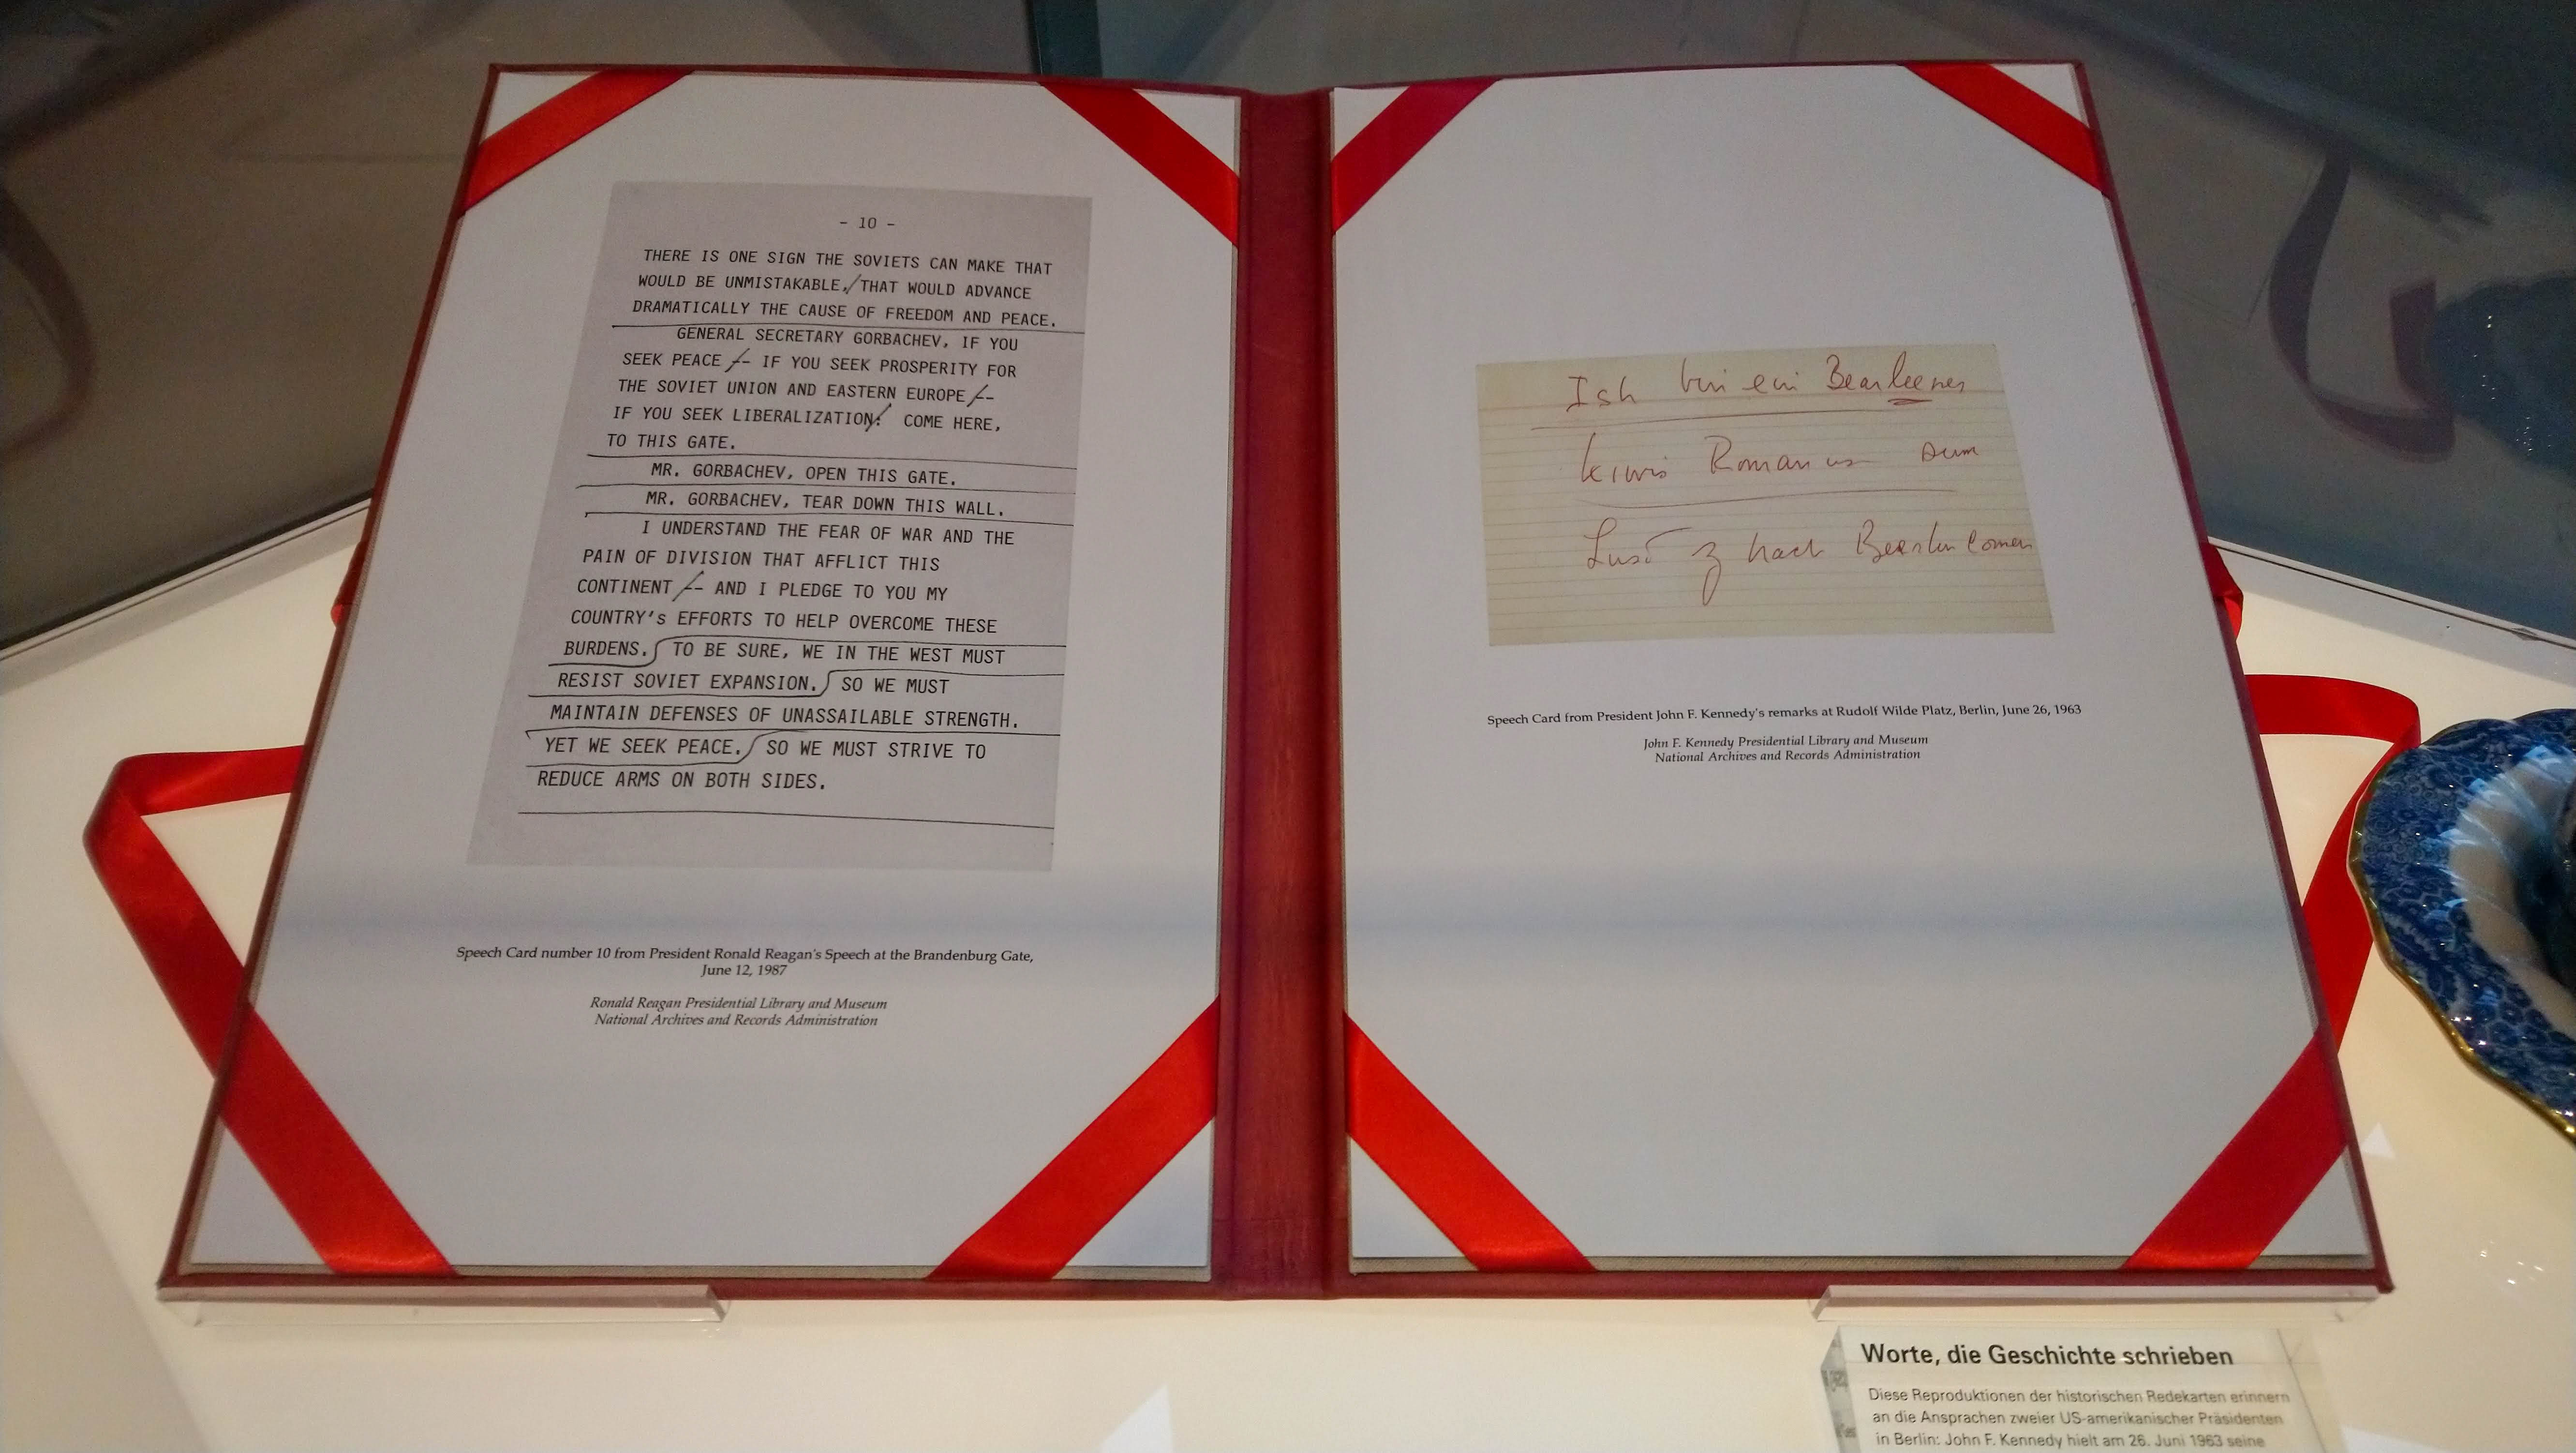 - 10 -
THERE IS ONE SIGN THE SOVIETS CAN MAKE THAT
WOULD BE UNMISTAKABLE, THAT WOULD ADVANCE
DRAMATICALLY THE CAUSE OF FREEDOM AND PEACE.
GENERAL SECRETARY GORBACHEV, IF YOU
SEEK PEACE -- IF YOU SEEK PROSPERITY FOR
THE SOVIET UNION AND EASTERN EUROPE --
IF YOU SEEK LIBERALIZATION: COME HERE,
TO THIS GATE.
MR. GORBACHEV, OPEN THIS GATE.
MR. GORBACHEV, TEAR DOWN THIS WALL.
I UNDERSTAND THE FEAR OF WAR AND THE
PAIN OF DIVISION THAT AFFLICT THIS
CONTINENT -- AND I PLEDGE TO YOU MY
COUNTRY's EFFORTS TO HELP OVERCOME THESE
BURDENS. TO BE SURE, WE IN THE WEST MUST
RESIST SOVIET EXPANSION. SO WE MUST
MAINTAIN DEFENSES OF UNASSAILABLE STRENGTH.
YET WE SEEK PEACE. SO WE MUST STRIVE TO
REDUCE ARMS ON BOTH SIDES.
Speech Card number 10 from President Ronald Reagan's Speech at the Brandenburg Gate,
June 12, 1987
Ronald Reagan Presidential Library and Museum
National Archives and Records Administration
Ish bin ein Bearleener
kiwis Romanus sum
Lust z nach Bearlin comen
Speech Card from President John F. Kennedy's remarks at Rudolf Wilde Platz, Berlin, June 26, 1963
John F. Kennedy Presidential Library and Museum
National Archives and Records Administration
Worte, die Geschichte schrieben
Diese Reproduktionen der historischen Redekarten erinnern
an die Ansprachen zweier US-amerikanischer Präsidenten
in Berlin: John F. Kennedy hielt am 26. Juni 1963 seine